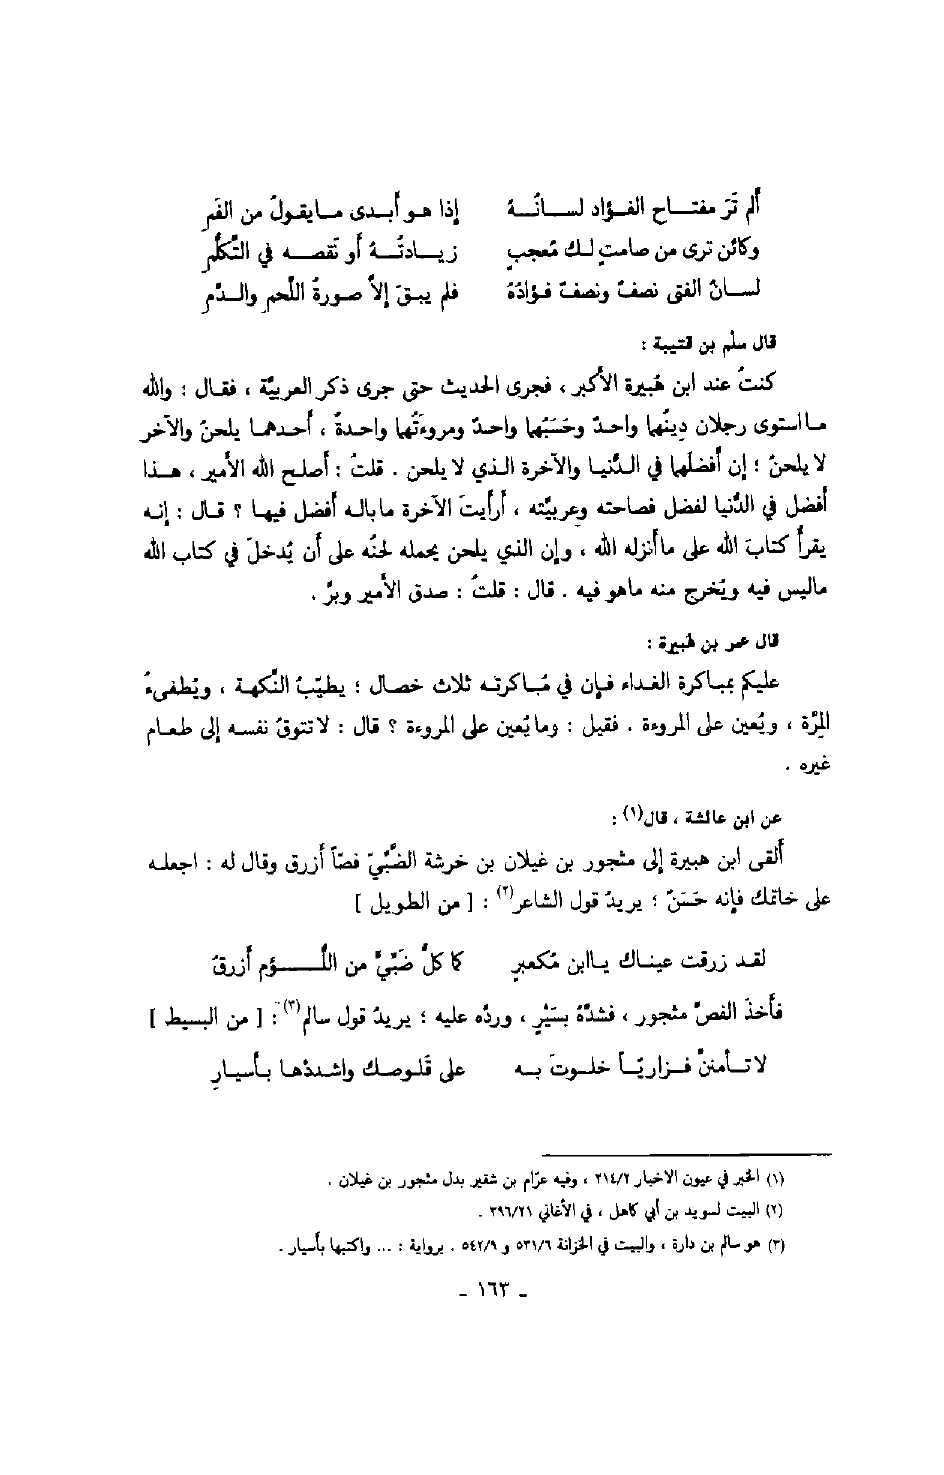 ألم تَرَ مفتـاح الفـؤاد لسـانُـهُ إذا هـو أبـدى مـا يقـولُ من الفَمِ
وكائن ترى من صامتٍ لـك مُعجبٍ زيـادتُـهُ أو نَقصـه في التَّكلُّمِ
لسـانُ الفتى نصفٌ ونصفٌ فـؤادُهُ فلم يبـقَ إلاَّ صـورةُ اللَّحمِ والـدَّمِ
قال سلم بن قتيبة :
كنتُ عند ابن هُبيرة الأكبر ، فجرى الحديث حتى جرى ذكر العربيَّة ، فقال : والله
مـا استوى رجلان دِينُهما واحدٌ وحَسَبُهما واحدٌ ومروءَتُهما واحدةٌ ، أحدهمـا يلحنُ والآخر
لا يلحنُ ؛ إن أفضلهما في الدُّنيـا والآخرة الـذي لا يلحن . قلتُ : أصلح الله الأمير ، هـذا
أفضل في الدُّنيا لفضل فصاحته وعربيَّته ، أرأيتَ الآخرة ما بالـه أفضل فيهـا ؟ قـال : إنـه
يقرأ كتابَ الله على ما أنزله الله ، وإن الذي يلحن يحمله لحنُه على أن يُدخلَ في كتاب الله
ماليس فيه ويُخرج منه ماهو فيه . قال : قلتُ : صدق الأمير وبرَّ .
قال عمر بن هُبيرة :
عليكم بمباكرة الغـداء فـإن في مُبـاكرتـه ثلاث خصال ؛ يطيِّبُ النَّكهـة ، ويُطفىءُ
المِرَّة ، ويُعين على المروءة . فقيل : وما يُعين على المروءة ؟ قال : لا تتوقُ نفسه إلى طعـام
غيره .
عن ابن عائشة ، قال(١) :
ألقى ابن هبيرة إلى مثجور بن غيلان بن خرشة الضَّبِّيّ فصّاً أزرق وقال له : اجعلـه
على خاتمك فإنه حَسَنٌ ؛ يريدُ قول الشاعر(٢) : [ من الطويل ]
لقـد زرقت عينـاك يـاابن مُكعبرٍ كما كلُّ ضَبِّيٍّ من اللُّـؤم أزرقُ
فأخذَ الفصَّ مثجور ، فشدَّهُ بسَيْرٍ ، وردَّه عليه ؛ يريدُ قول سالم(٣) : [ من البسيط ]
لا تـأمننَّ فـزاريّـاً خلـوتَ بـه على قَلـوصـك واشددْهـا بـأسيـارِ
(١) الخبر في عيون الأخبار ٢١٤/٢ ، وفيه عرّام بن شقير بدل مثجور بن غيلان .
(٢) البيت لسويد بن أبي كاهل ، في الأغاني ٣٩٦/٢١ .
(٣) هو سالم بن دارة ، والبيت في الخزانة ٥٣١/٦ و ٥٤٢/٩ . برواية : ... واكتبها بأسيار .
- ١٦٣ -